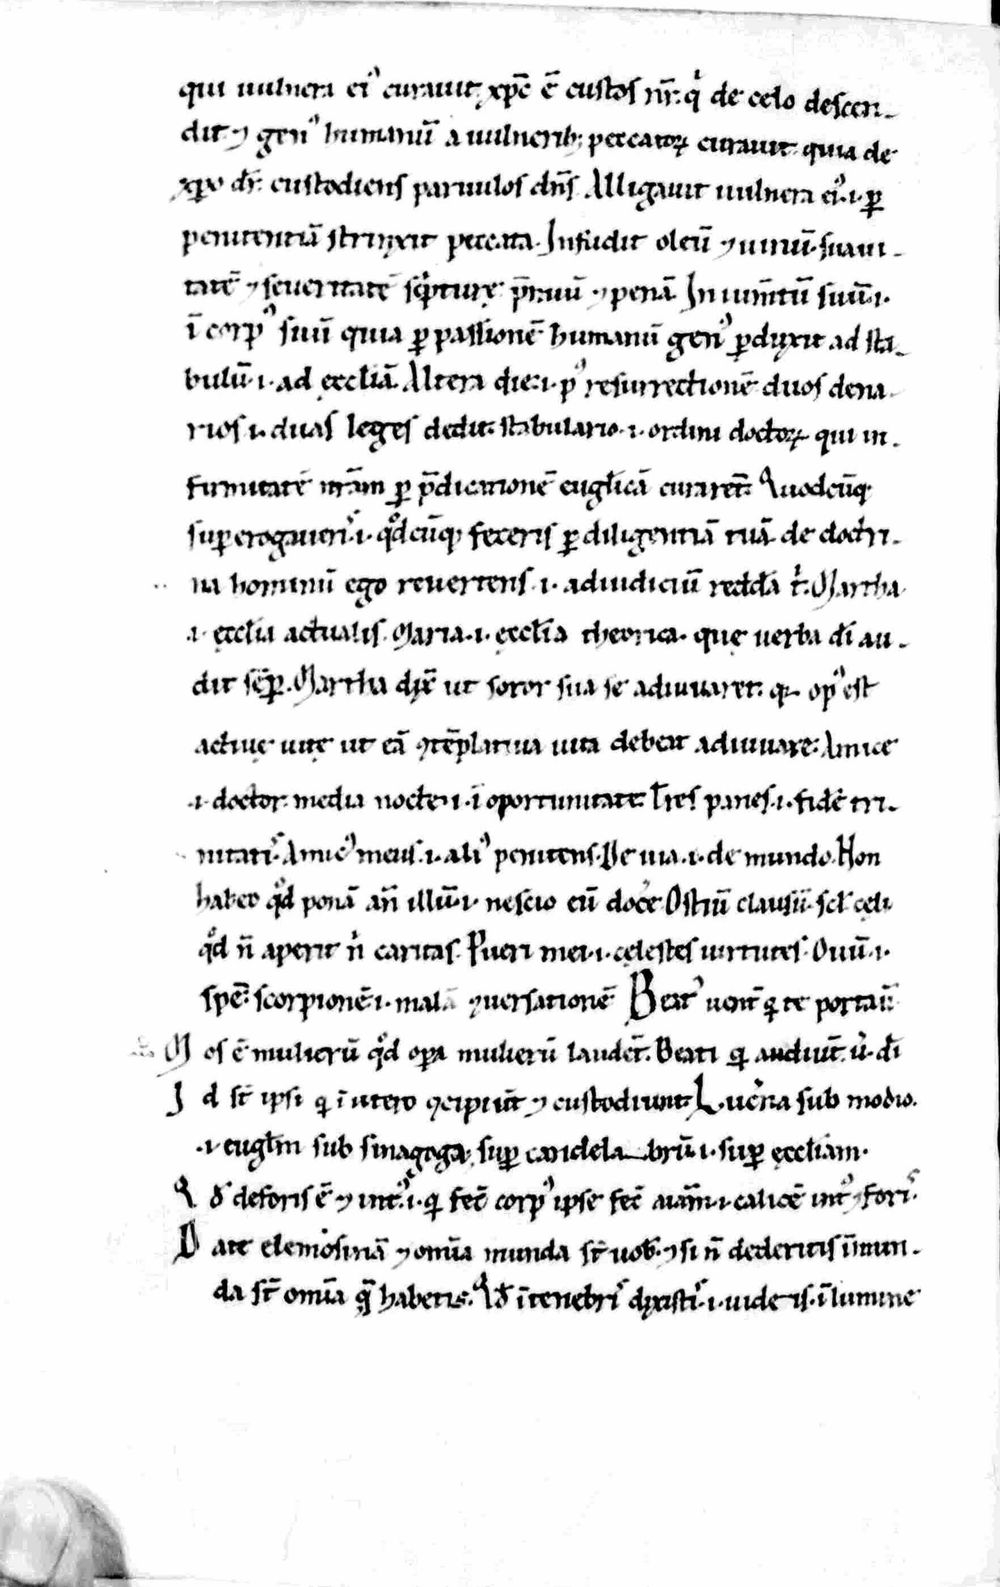 qui uulnera ei᾽ curauit. xp̄c ē custos nr̄. q̇ de celo descen-
dit ⁊ gen᾽ humanū a uulnerib; peccatoꝝ curauit quia de
xp̄o dr̄. custodiens paruulos dn̄s. Alligauit uulnera ei᾽. i. ꝑ
penitentiā strinxit peccata. Infudit oleū ⁊ uinū. suaui-
tatē ⁊ seueritatē sc̄pturę p̄miū ⁊ penā. In ium̄tū suū. i.
ī corp᾽ suū quia ꝑ passionē humanū gen᾽ ꝑduxit ad sta-
bulū. i. ad ęccl̄iā. Altera die. i. p᾽ resurrectionē duos dena-
rios. i. duas leges dedit stabulario. i. ordini doctoꝝ qui in-
firmitatē nr̄am ꝑ p̄dicationē eugl̄icā curaret. Quodcūq;
suꝑerogaueri᾽. i. qͦdcūq; feceris ꝑ diligentiā tuā de doctri-
na hominū ego reuertens. i. ad iudiciū reddā t̄. Martha
.i. ęccl̄ia actualis. Maria. i. ęccl̄ia theorica. quę uerba dī au-
dit sēꝑ. Martha dix̄ ut soror sua se adiuuaret. q; op᾽ est
actiuę uitę ut eā ꝯtēplatiua uita debeat adiuuare. Amice
.i. doctor. media nocte. i. ī oportunitate. Tres panes. i. fidē tri-
nitati᾽. Amic᾽ meus. i. ali᾽ penitens. De uia. i. de mundo. Non
habeo qͦd ponā an̄ illū. i. nescio eū doce᾽. Ostiū clausū. scl̄ cęli
qͦd n̄ aperit n̄ caritas. Pueri mei. i. cęlestes uirtutes. Ouū. i.
spē. scorpionē. i. malā ꝯuersationē Beat᾽ uent̄ q̇ te portau᾽
Mos ē mulierū qͦd oꝑa mulierū laudet̄. Beati q̇ audiūt. ū. dī
Id st̄ ipsi q̇ ī utero ꝯcipiūt ⁊ custodiunt. Luc̄na sub modio.
.i. eugl̄m sub sinagoga. suꝑ candelabrū. i. suꝑ ęccl̄iam.
Qd̄ deforis ē ⁊ int᾽. i. q̇ fec̄ corp᾽ ipse fec̄ aīam. i. calicē int᾽ ⁊ fori᾽.
Date elemosinā ⁊ omīa munda st̄ uob᾽. ⁊ si n̄ dederitis īmun-
da st̄ omīa q̄ habetis. Qd̄ ī tenebri᾽ dixisti᾽. i. uideris. ī lumine